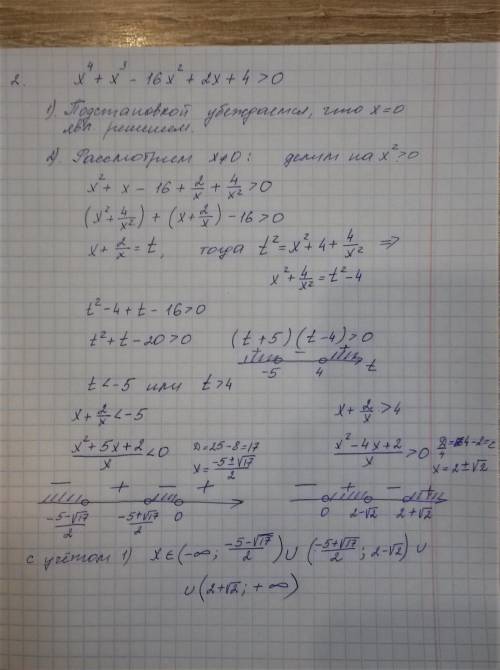 2. x⁴ + x³ - 16x² + 2x + 4 > 0
1). Подстановкой убеждаемся, что x=0
явл. решением.
2). Рассмотрим x≠0: делим на x²>0
x² + x - 16 + 2/x + 4/x² > 0
(x² + 4/x²) + (x + 2/x) - 16 > 0
x + 2/x = t, тогда t² = x² + 4 + 4/x² ⇒
x² + 4/x² = t² - 4
t² - 4 + t - 16 > 0
t² + t - 20 > 0 (t+5)(t-4) > 0
+ - +
-5 4 t
t < -5 или t > 4
x + 2/x < -5 x + 2/x > 4
(x² + 5x + 2)/x < 0 D = 25 - 8 = 17 (x² - 4x + 2)/x > 0
x = (-5 ± √17)/2 x = 2 ± √2
- + - + - + - +
(-5-√17)/2 (-5+√17)/2 0 0 2-√2 2+√2
с учётом 1) x ∈ (-∞; (-5-√17)/2) ∪ ((-5+√17)/2; 2-√2) ∪
∪ (2+√2; +∞)